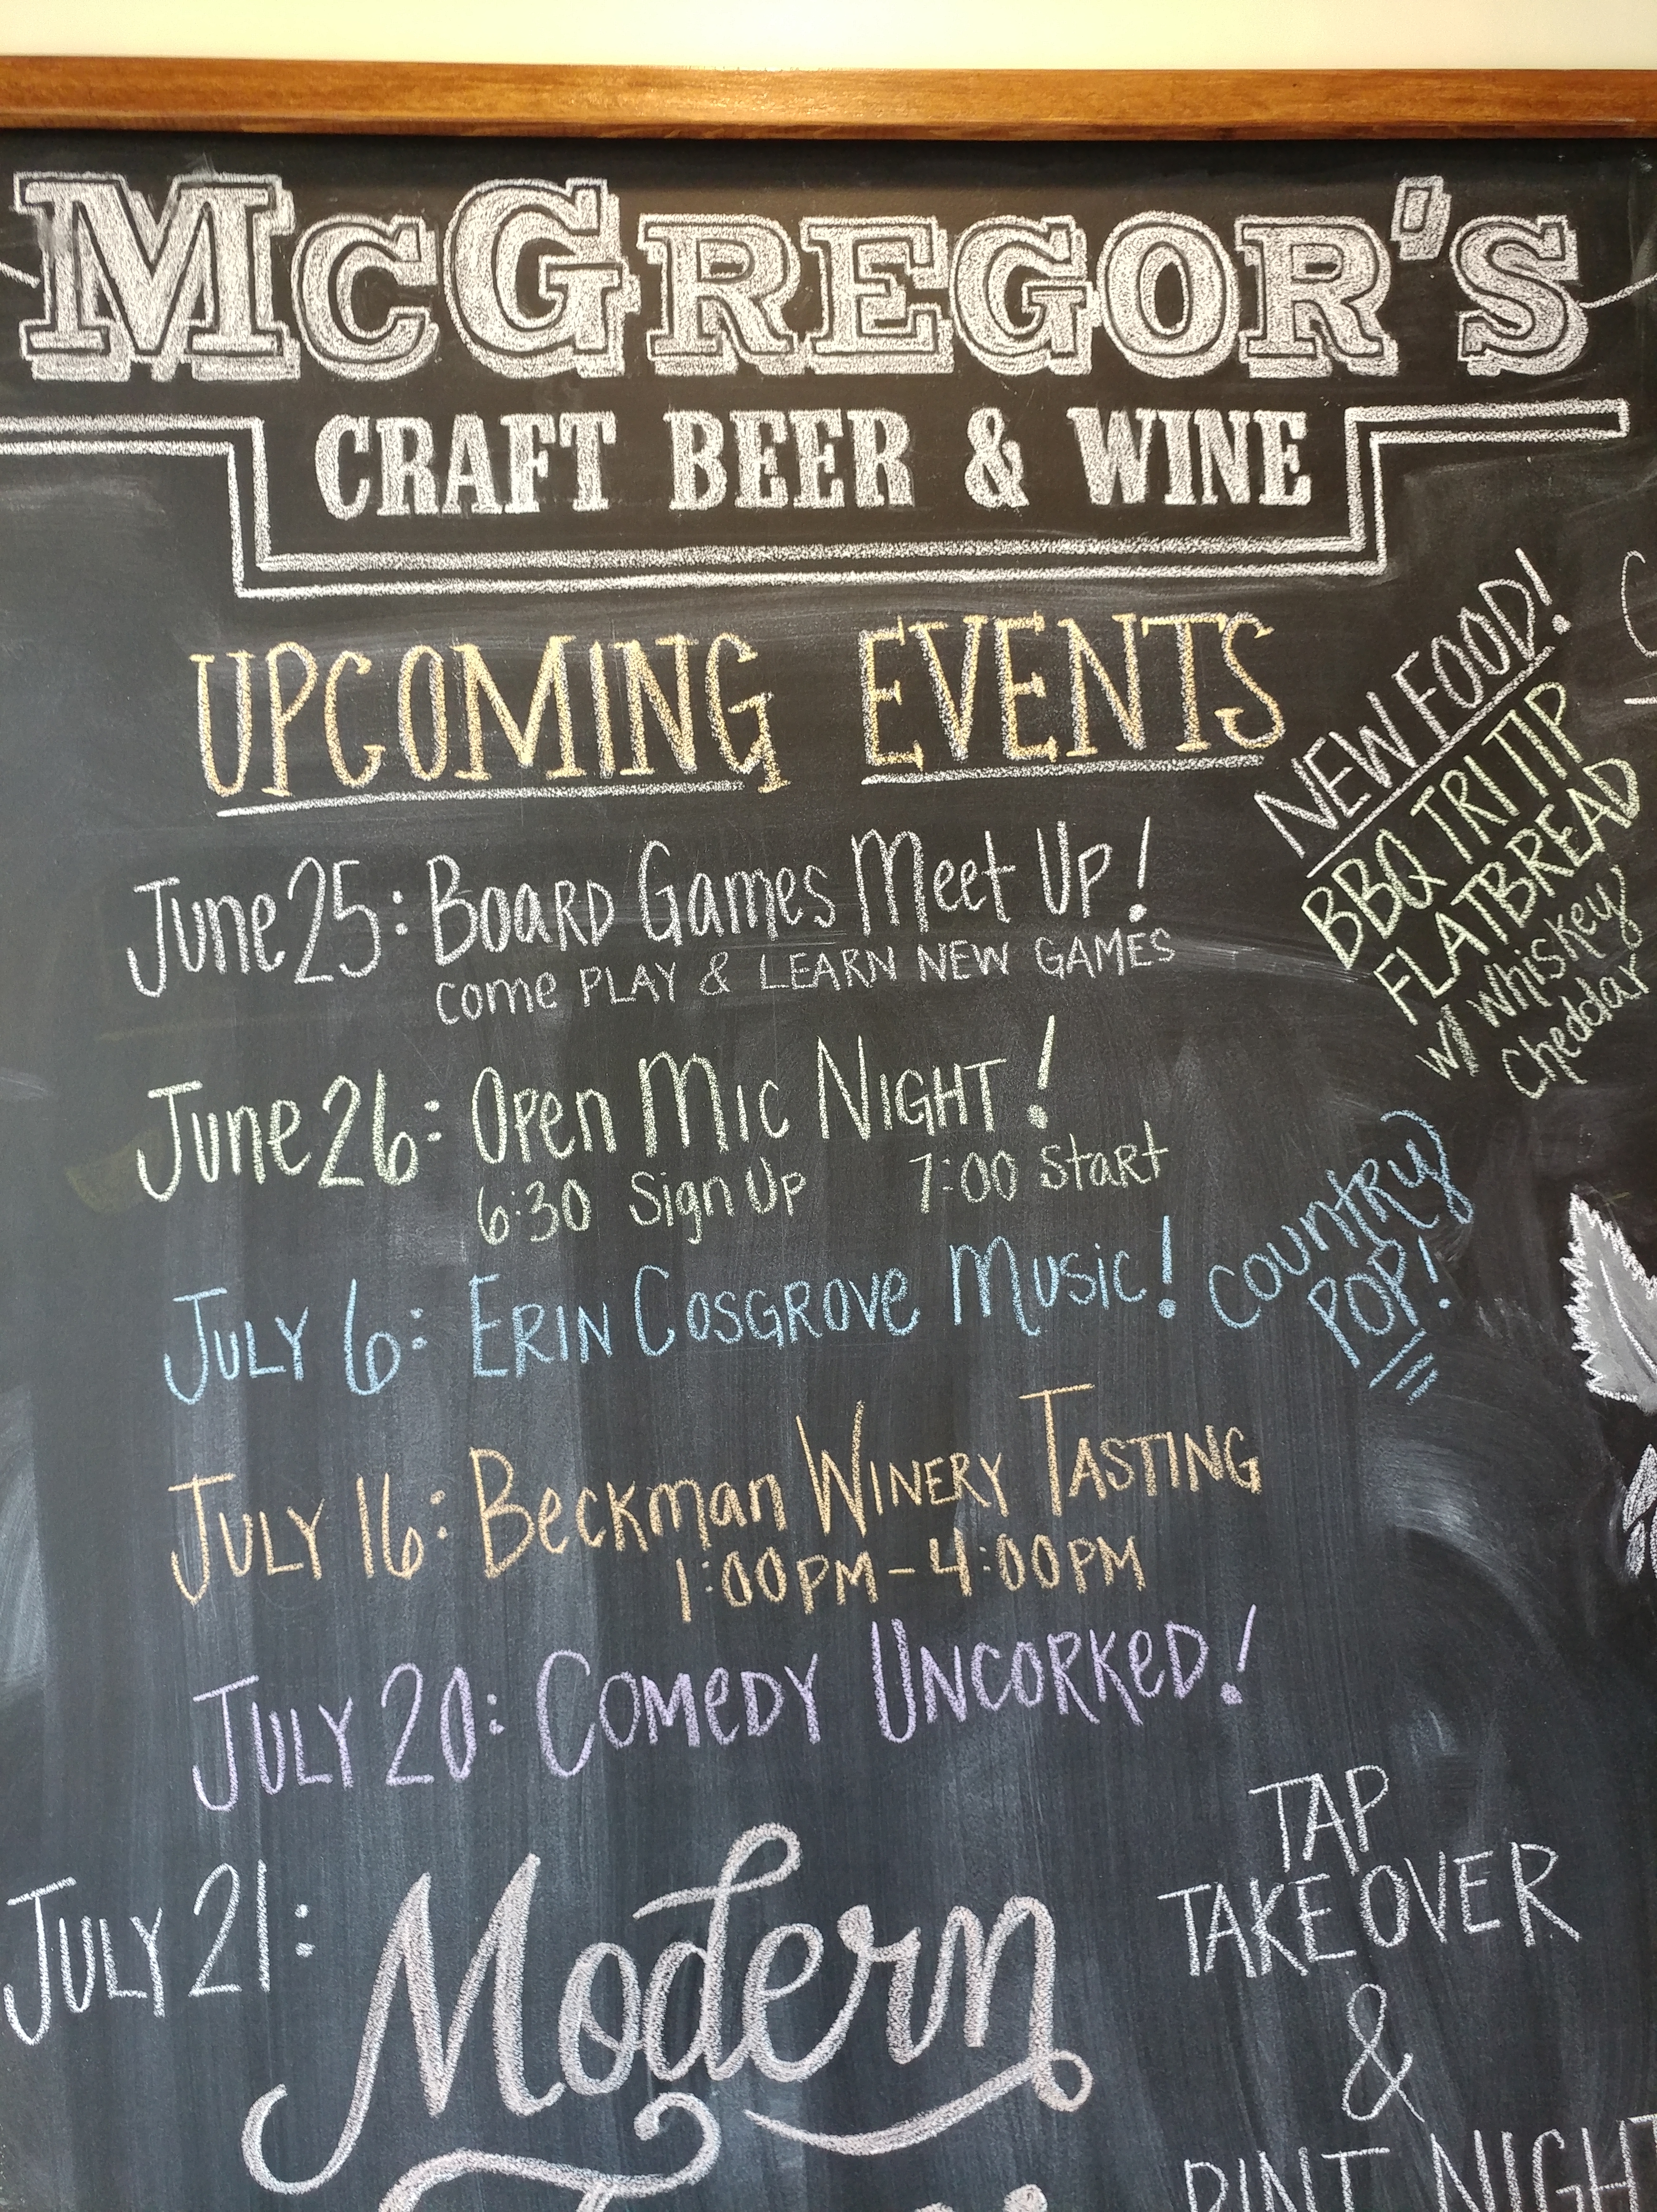 McGREGOR'S
CRAFT BEER & WINE
UPCOMING EVENTS
NEW FOOD!
BBQ TRI TIP
FLATBREAD
w/ whiskey
Cheddar
June 25: BOARD Games Meet UP!
come PLAY & LEARN NEW GAMES
June 26: Open MIC NIGHT!
6:30 Sign Up 7:00 Start
JULY 6: ERIN COSGROVE MUSIC! COUNTRY
POP!
JULY 16: Beckman WINERY TASTING
1:00PM-4:00PM
JULY 20: COMEDY UNCORKED!
JULY 21: Modern
TAP
TAKEOVER
&
PINT NIGHT